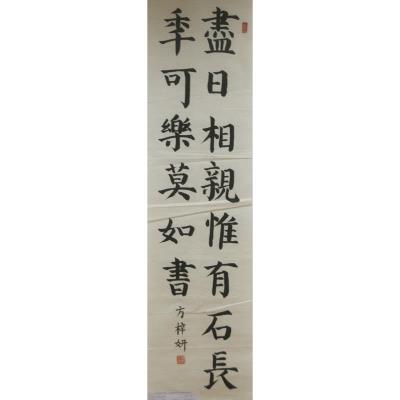 盡日相親惟有石長
年可樂莫如書
方梓妍